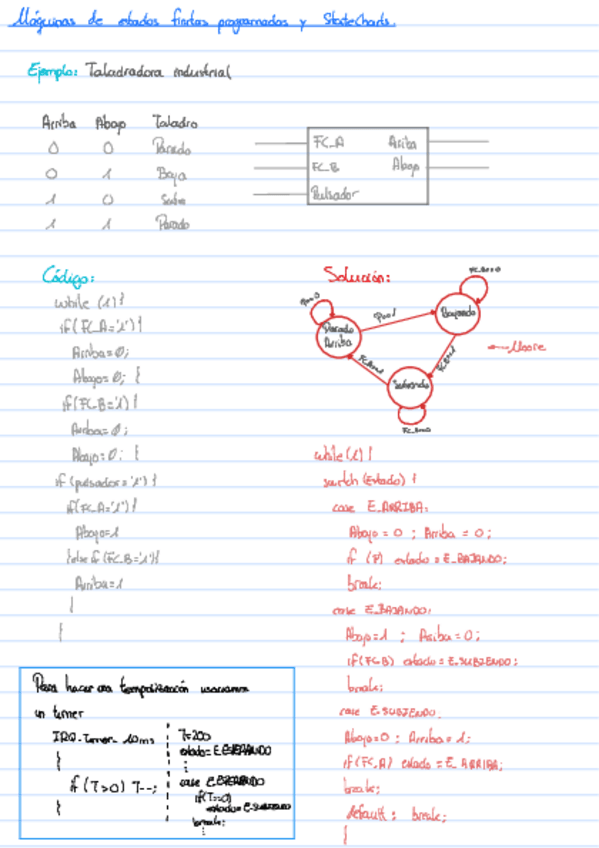 Máquinas de estados finitos programadas y StateCharts.
Ejemplo: Taladradora industrial
Arriba Abajo Taladro
0 0 Parado
0 1 Baja
1 0 Sube
1 1 Parado
FC_A Arriba
FC_B Abajo
Pulsador
Código:
while (1) {
if (FC_A='1') {
Arriba=0;
Abajo=0; }
if (FC_B='1') {
Arriba=0;
Abajo=0; }
if (pulsador='1') {
if (FC_A='1') {
Abajo=1
}else if (FC_B='1'){
Arriba=1
}
}
Solución:
Parado
Arriba
Bajando
Subiendo
← Moore
while (1) {
switch (Estado) {
case E_ARRIBA:
Abajo = 0 ; Arriba = 0;
if (P) estado = E_BAJANDO;
break;
case E_BAJANDO:
Abajo=1 ; Arriba=0;
if (FC_B) estado = E_SUBIENDO;
break;
case E_SUBIENDO:
Abajo=0 ; Arriba=1;
if (FC_A) estado = E_ARRIBA;
break;
default: break;
}
Para hacer una temporización usaríamos
un timer
IRQ_timer_10ms
{
if (T>0) T--;
}
T=200
estado=E_ESPERANDO
:
case E_ESPERANDO
if(T==0)
estado=E_SUBIENDO
break;
: